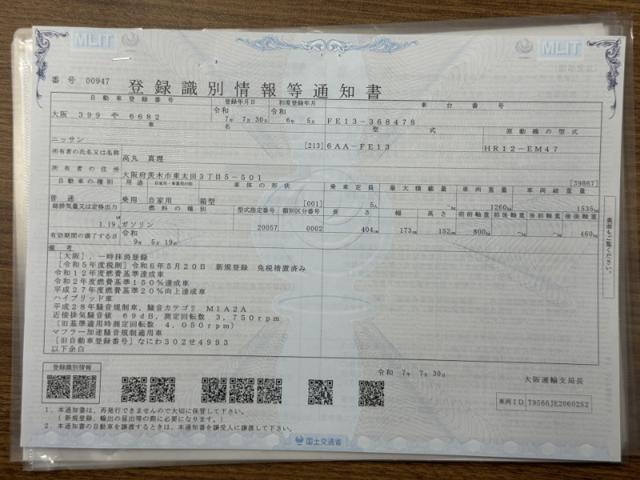 MLIT
MLIT
番号 00947
登録識別情報等通知書
自動車登録番号 登録年月日 初度登録年月 車台番号
大阪 399 や 6682 令和 7年 7月 30日 令和 6年 5月 FE13-368478
車名 型式 原動機の型式
ニッサン [213] 6AA-FE13 HR12-EM47
所有者の氏名又は名称 高丸 真理
所有者の住所 大阪府茨木市東太田3丁目5-501 [39867]
自動車の種別 用途 自家用・事業用の別 車体の形状 乗車定員 最大積載量 車両重量 車両総重量
普通 乗用 自家用 箱型 [001] 5人 1260kg 1535kg
総排気量又は定格出力 燃料の種類 型式指定番号 類別区分番号 長さ 幅 高さ 前前軸重 前後軸重 後前軸重 後後軸重
1.19 ガソリン 20057 0002 404cm 173cm 152cm 800kg 460kg
有効期間の満了する日 令和 9年 5月 19日
備考
[大阪] 一時抹消登録
[令和5年度税制] 令和6年5月20日 新規登録 免税措置済み
令和12年度燃費基準達成車
令和2年度燃費基準150%達成車
平成27年度燃費基準20%向上達成車
ハイブリッド車
平成28年騒音規制車,騒音カテゴリ M1A2A
近接排気騒音値 69dB,測定回転数 3,750rpm
[旧基準適用時測定回転数 4,050rpm]
マフラー加速騒音規制適用車
[旧自動車登録番号] なにわ302せ4993
以下余白
裏面もご覧ください。
登録識別情報
令和 7年 7月 30日
大阪運輸支局長
車両ID T9566JE2060252
1. 本通知書は、再発行できませんので大切に保管して下さい。
(新規登録、輸出の届出等の際に必要になります。)
2. 本通知書の自動車を譲渡するときは、本通知書を譲受人に譲渡して下さい。
国土交通省